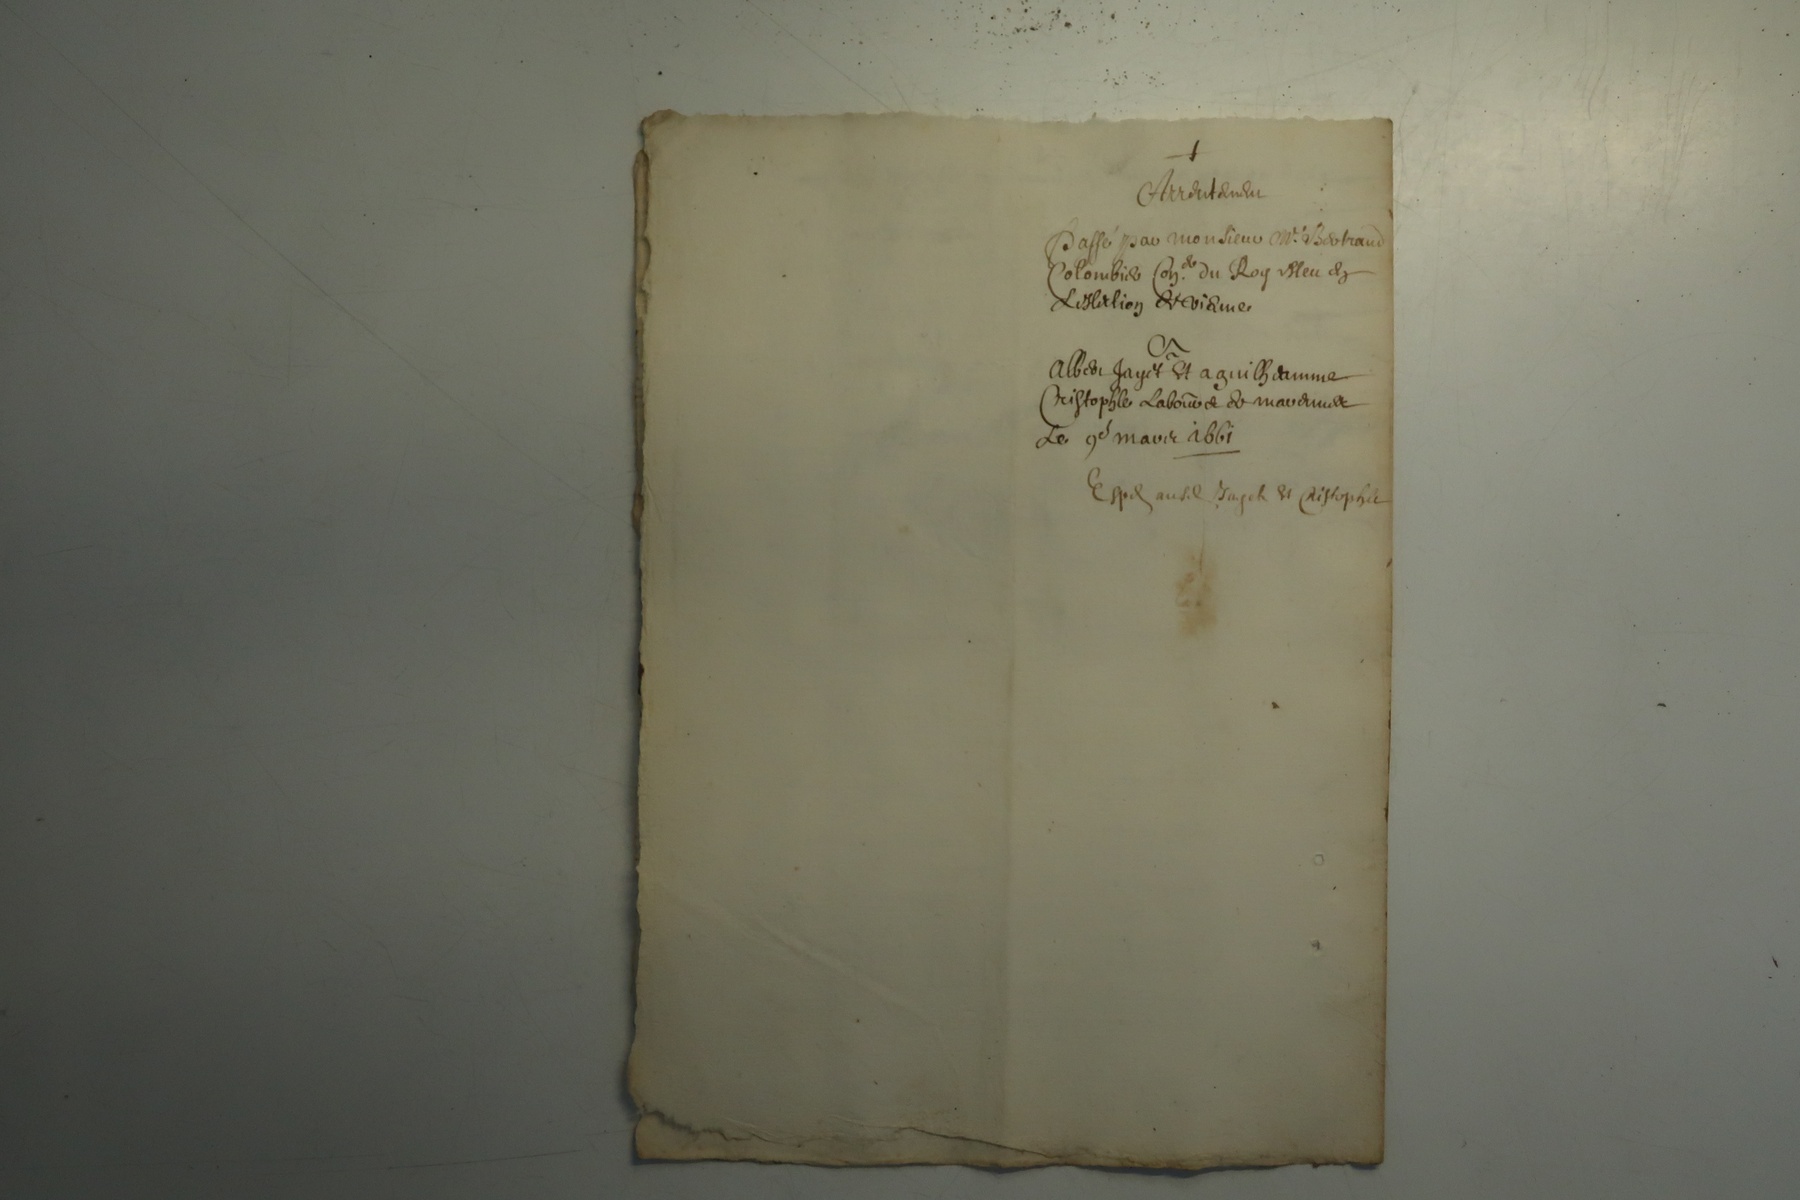 Arrentemen
Passé par monsieur Mr. Bertrand
Colombier Con.er du Roy esleu en
Leslection de vienne
A
Albert Jayet et a guilheaumme
Cristophle Laboure de
Le 9e mars 1661
Jayet et Cristophle